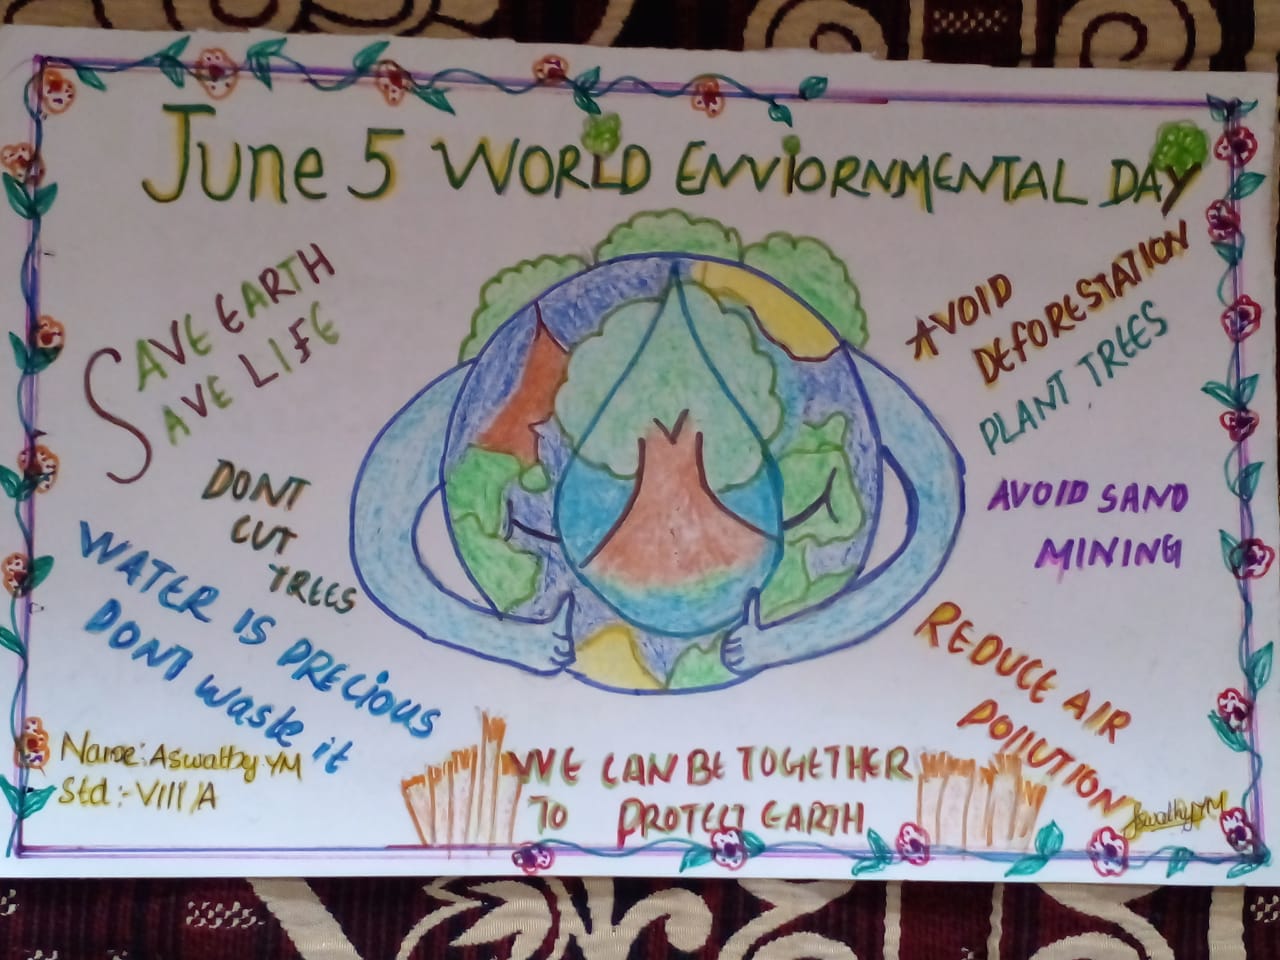 June 5 WORLD ENVIORNMENTAL DAY
SAVE EARTH
SAVE LIFE
DONT
CUT
TREES
WATER IS PRECIOUS
DONT waste it
Name: Aswathy YM
Std:- VIII/A
AVOID
DEFORESTATION
PLANT TREES
AVOID SAND
MINING
REDUCE AIR
POllUTION
WE CAN BE TOGETHER
TO PROTECT EARTH
AswathyYM